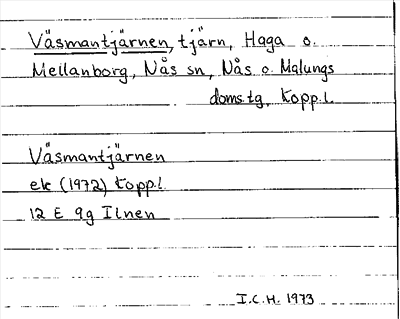 Väsmantjärnen, tjärn, Haga o.
Mellanborg, Nås sn, Nås o. Malungs
doms.tg, Kopp.l.
Väsmantjärnen
ek (1972) Kopp.l.
12 E 9g Ilnen
I.C.H. 1973